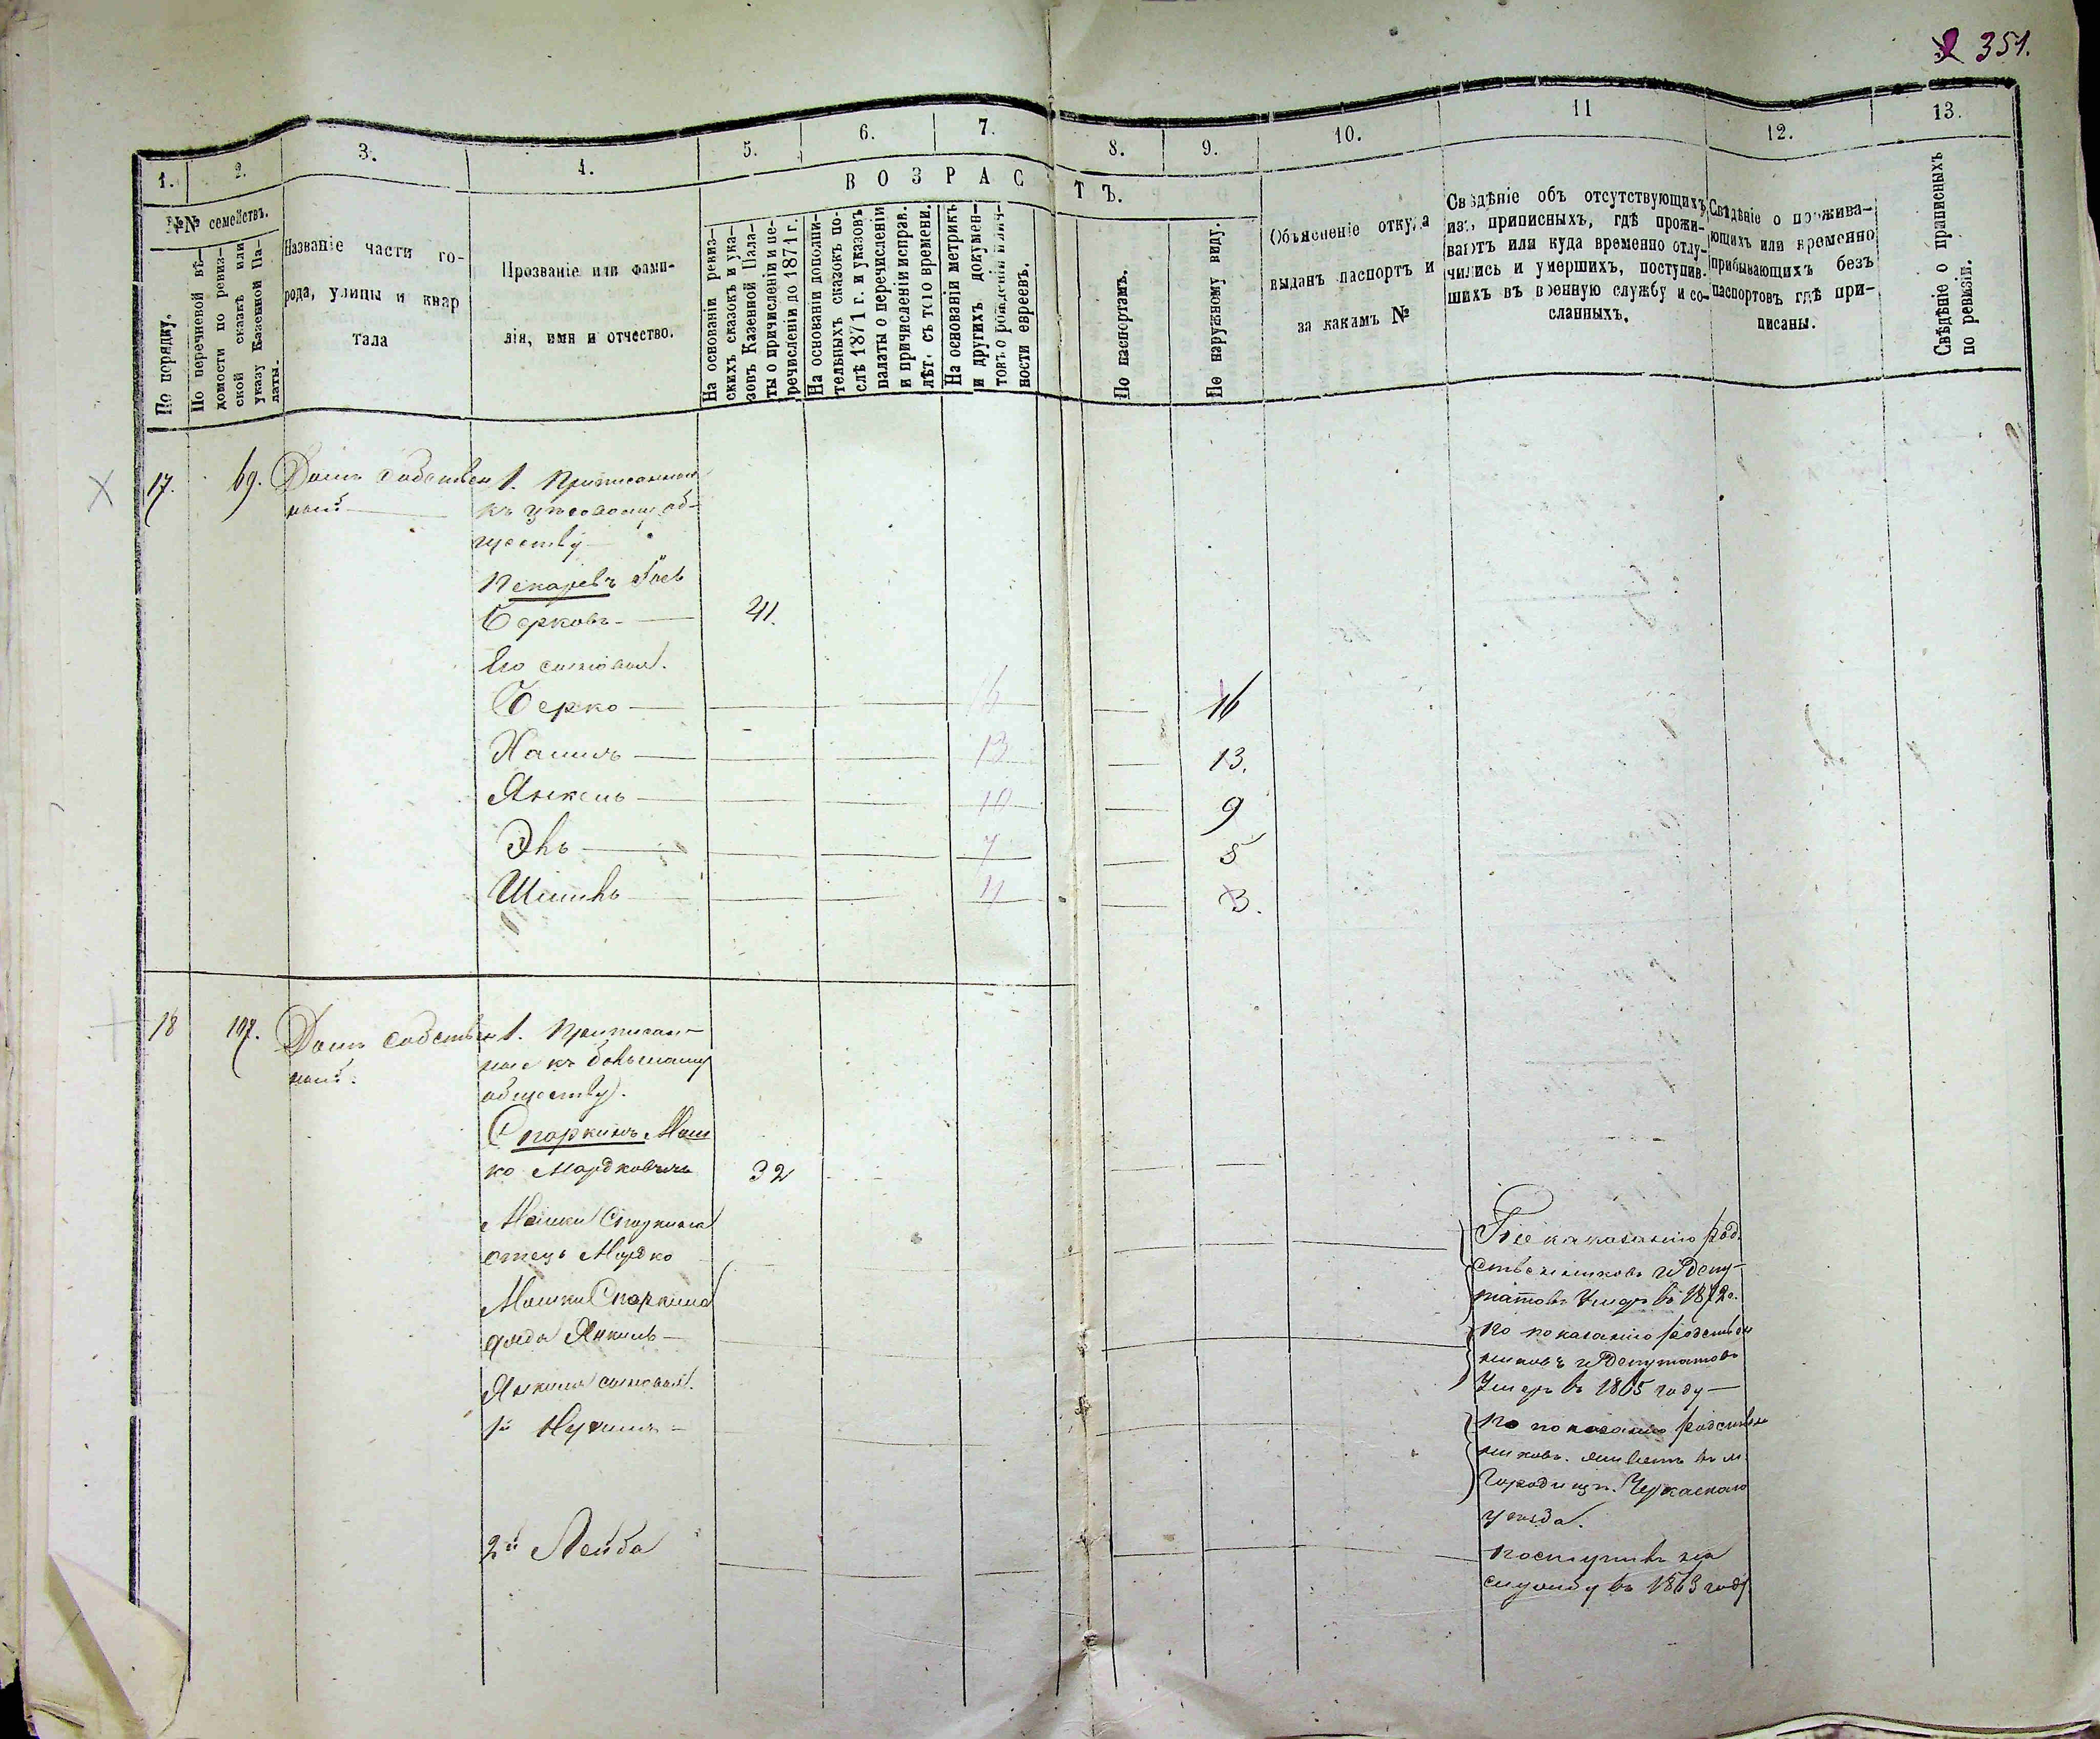 351.
1.
2.
3.
4.
5.
6.
7.
8.
9.
10.
11
12.
13.
№№ семействъ.
По порядку.
По перечневой вѣ-
домости по ревиз-
ской сказкѣ или
указу Казенной Па-
латы.
Названіе части го-
рода, улицы и квар
тала
Прозваніе или фами-
лія, имя и отчество.
ВОЗРАСТЪ.
На основаніи ревиз-
скихъ сказокъ и ука-
зовъ Казенной Пала-
ты о причисленіи и пе-
речисленіи до 1871 г.
На основаніи дополни-
тельныхъ сказокъ по-
слѣ 1871 г. и указовъ
палаты о перечисленіи
и причисленіи исправ.
лѣт. съ того времени.
На основаніи метрикъ
и другихъ докумен-
товъ о рожденіи и лич-
ности евреевъ.
По паспортамъ.
По наружному виду.
Объясненіе откуда
выданъ паспортъ и
за какимъ №
Свѣдѣніе объ отсутствующихъ
изъ приписныхъ, гдѣ прожи-
ваютъ или куда временно отлу-
чились и умершихъ, поступив-
шихъ въ военную службу и со-
сланныхъ.
Свѣдѣніе о прожива-
ющихъ или временно
прибывающихъ безъ
паспортовъ гдѣ при-
писаны.
Свѣдѣніе о приписныхъ
по ревизіи.
17. 69. Домъ собствен
ный
1. Приписанный
къ об-
ществу
Пекаревъ
Берковъ 41.
Его сыновья.
Берко 16 16
Хаимъ 13 13.
Янкель 10 9
7 5
4 3.
18 197. Домъ собствен
ный.
1. Приписан-
ные къ большому
обществу.
Спаркинъ Мош
ко Мордковичъ 32
Мошки Спаркина
отецъ Мордко
показанію род
ственниковъ и депу-
татовъ Умеръ въ 1872 г.
Мошки Спаркина
дядя Янкель
По показанію родствен
никовъ и Депутатовъ
Умеръ въ 1865 году
Янкеля сыновья.
1й Нухимъ
По показанію родствен
никовъ живетъ въ м.
Городищѣ Черкаскаго
уѣзда.
2й Лейба
поступивъ на
службу въ 1863 году